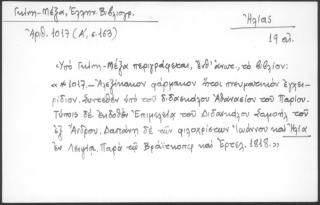 Γκίνη-Μέξα, Ἑλλην. Βιβλιογρ.
Ἀριθ. 1017 (Α', σ. 163)
Ἠλίας
19 αἰ.
«Ὑπὸ Γκίνη-Μέξα περιγράφεται, ἔνθ' ἀνωτ., τὸ βιβλίον:
«*1017.- Ἀλεξίκακον φάρμακον ἤτοι πνευματικὸν ἐγχει-
ρίδιον. Συντεθὲν ὑπὸ τοῦ διδασκάλου Ἀθανασίου τοῦ Παρίου.
Τύποις δὲ ἐκδοθὲν Ἐπιμελείᾳ τοῦ Διδασκάλου Σαμουὴλ τοῦ
ἐξ Ἄνδρου. Δαπάνῃ δὲ τῶν φιλοχρίστων Ἰωάννου καὶ Ἠλία
ἐν Λειψίᾳ, Παρὰ τῷ Βράϊτκοπφ καὶ Ἑρτελ. 1818.»